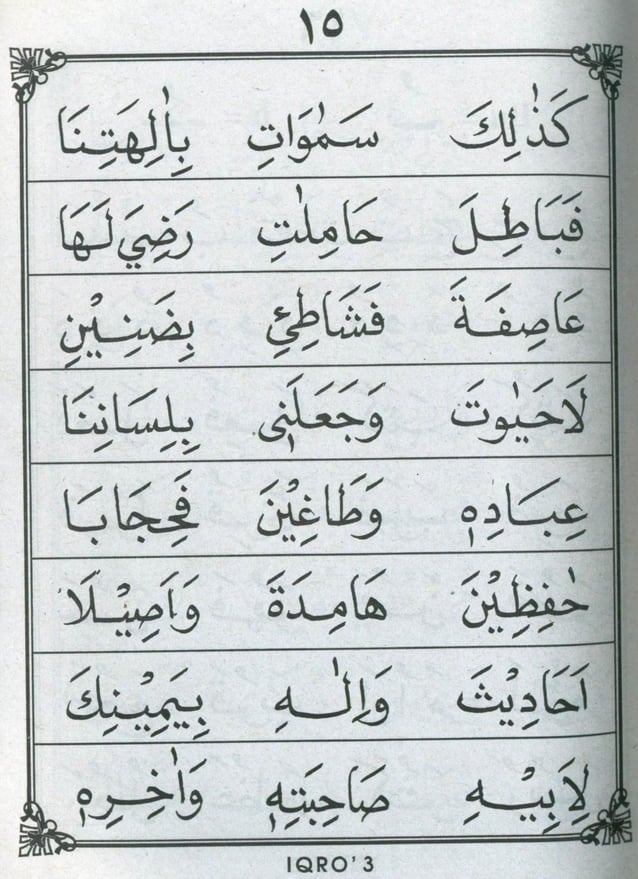 ١٥
كَذٰلِكَ سَمٰوَاتِ بِاٰلِهَتِنَا
فَبَاطِلَ حَامِلٰتِ رَضِيَ لَهَا
عَاصِفَةَ فَشَاطِئِ بِضَنِيْنِ
لَاحَيٰوتَ وَجَعَلَنِى بِلِسَانِنَا
عِبَادِهٖ وَطَاغِيْنَ فَحِجَابَا
حٰفِظِيْنَ هَامِدَةَ وَاَصِيْلَا
اَحَادِيْثَ وَاِلٰهِ بِيَمِيْنِكَ
لِاَبِيْهِ صَاحِبَتِهٖ وَاٰخِرِهٖ
IQRO' 3